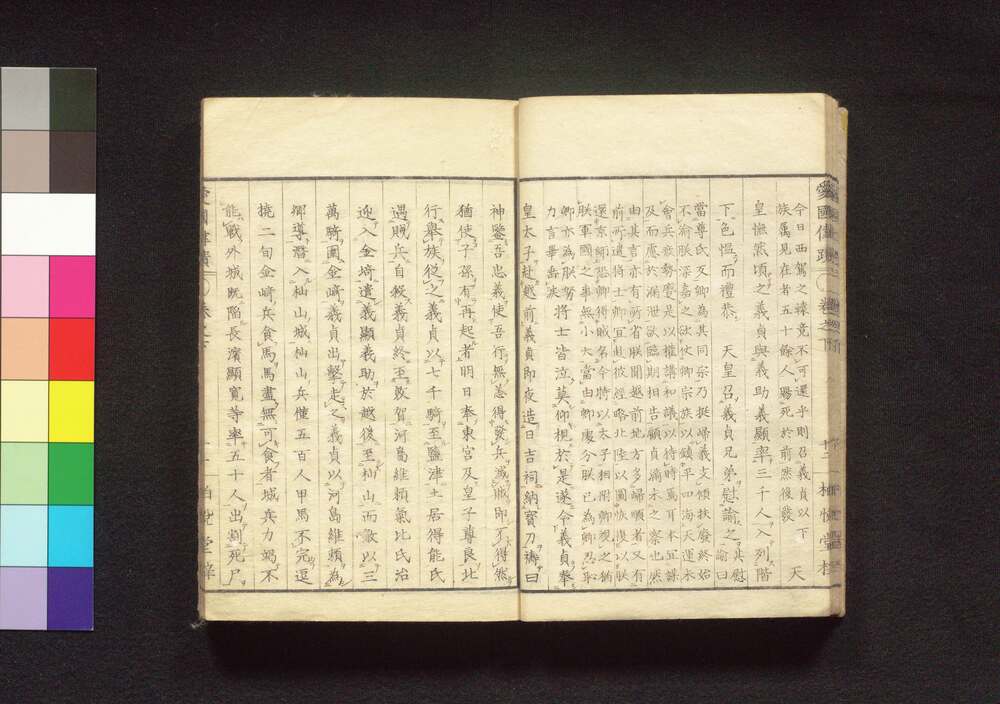 愛國偉績
今日西駕之擧竟不可還乎則召義貞以下 天
族屬見在者五十餘人賜死於前然後發
皇憮然頃之義貞與義助義顯率三千人入列階
下色愠而禮恭 天皇召義貞兄弟慰諭之 其慰諭曰
當尊氏叉卿為其同宗乃挺歸義支傾扶廢終始
不渝朕深嘉之欲使卿宗族以鎮平四海天運未
會兵疲勢蹙是以權講和議以待時焉耳本宜謀
及而慮於漏泄欲臨期相告顧貞滿未之察也然
由其言亦有所省朕聞越前地方多歸順者又有
前所遣將士卿宜赴彼經略北陸以圖恢復以朕
還京師恐卿得賊名今將以太子相附卿視之猶
朕軍國之事無小大當由卿處分朕已為卿忍恥
卿亦為朕努力言畢垂淚 將士皆泣莫仰視於是遂令義貞奉
皇太子赴越前義貞即夜造日吉祠納寶刀禱曰
神鑒吾忠義使吾行無恙得發兵滅賊即不得然
猶使子孫有再起者明日奉東宮及皇子尊良北
行舉族從之義貞以七千騎至鹽津土居得能氏
遇賊兵自殺義貞終至敦賀河島維賴氣比氏治
迎入金﨑遣義顯義助於越後至杣山而敵以三
萬騎圍金﨑義貞出擊走之義貞以河島維賴為
鄉導潛入杣山城杣山兵僅五百人甲馬不完逗
撓二旬金﨑兵食馬馬盡無可食者城兵力竭不
能戰外城既陷長濱顯寬等率五十人出割死尸